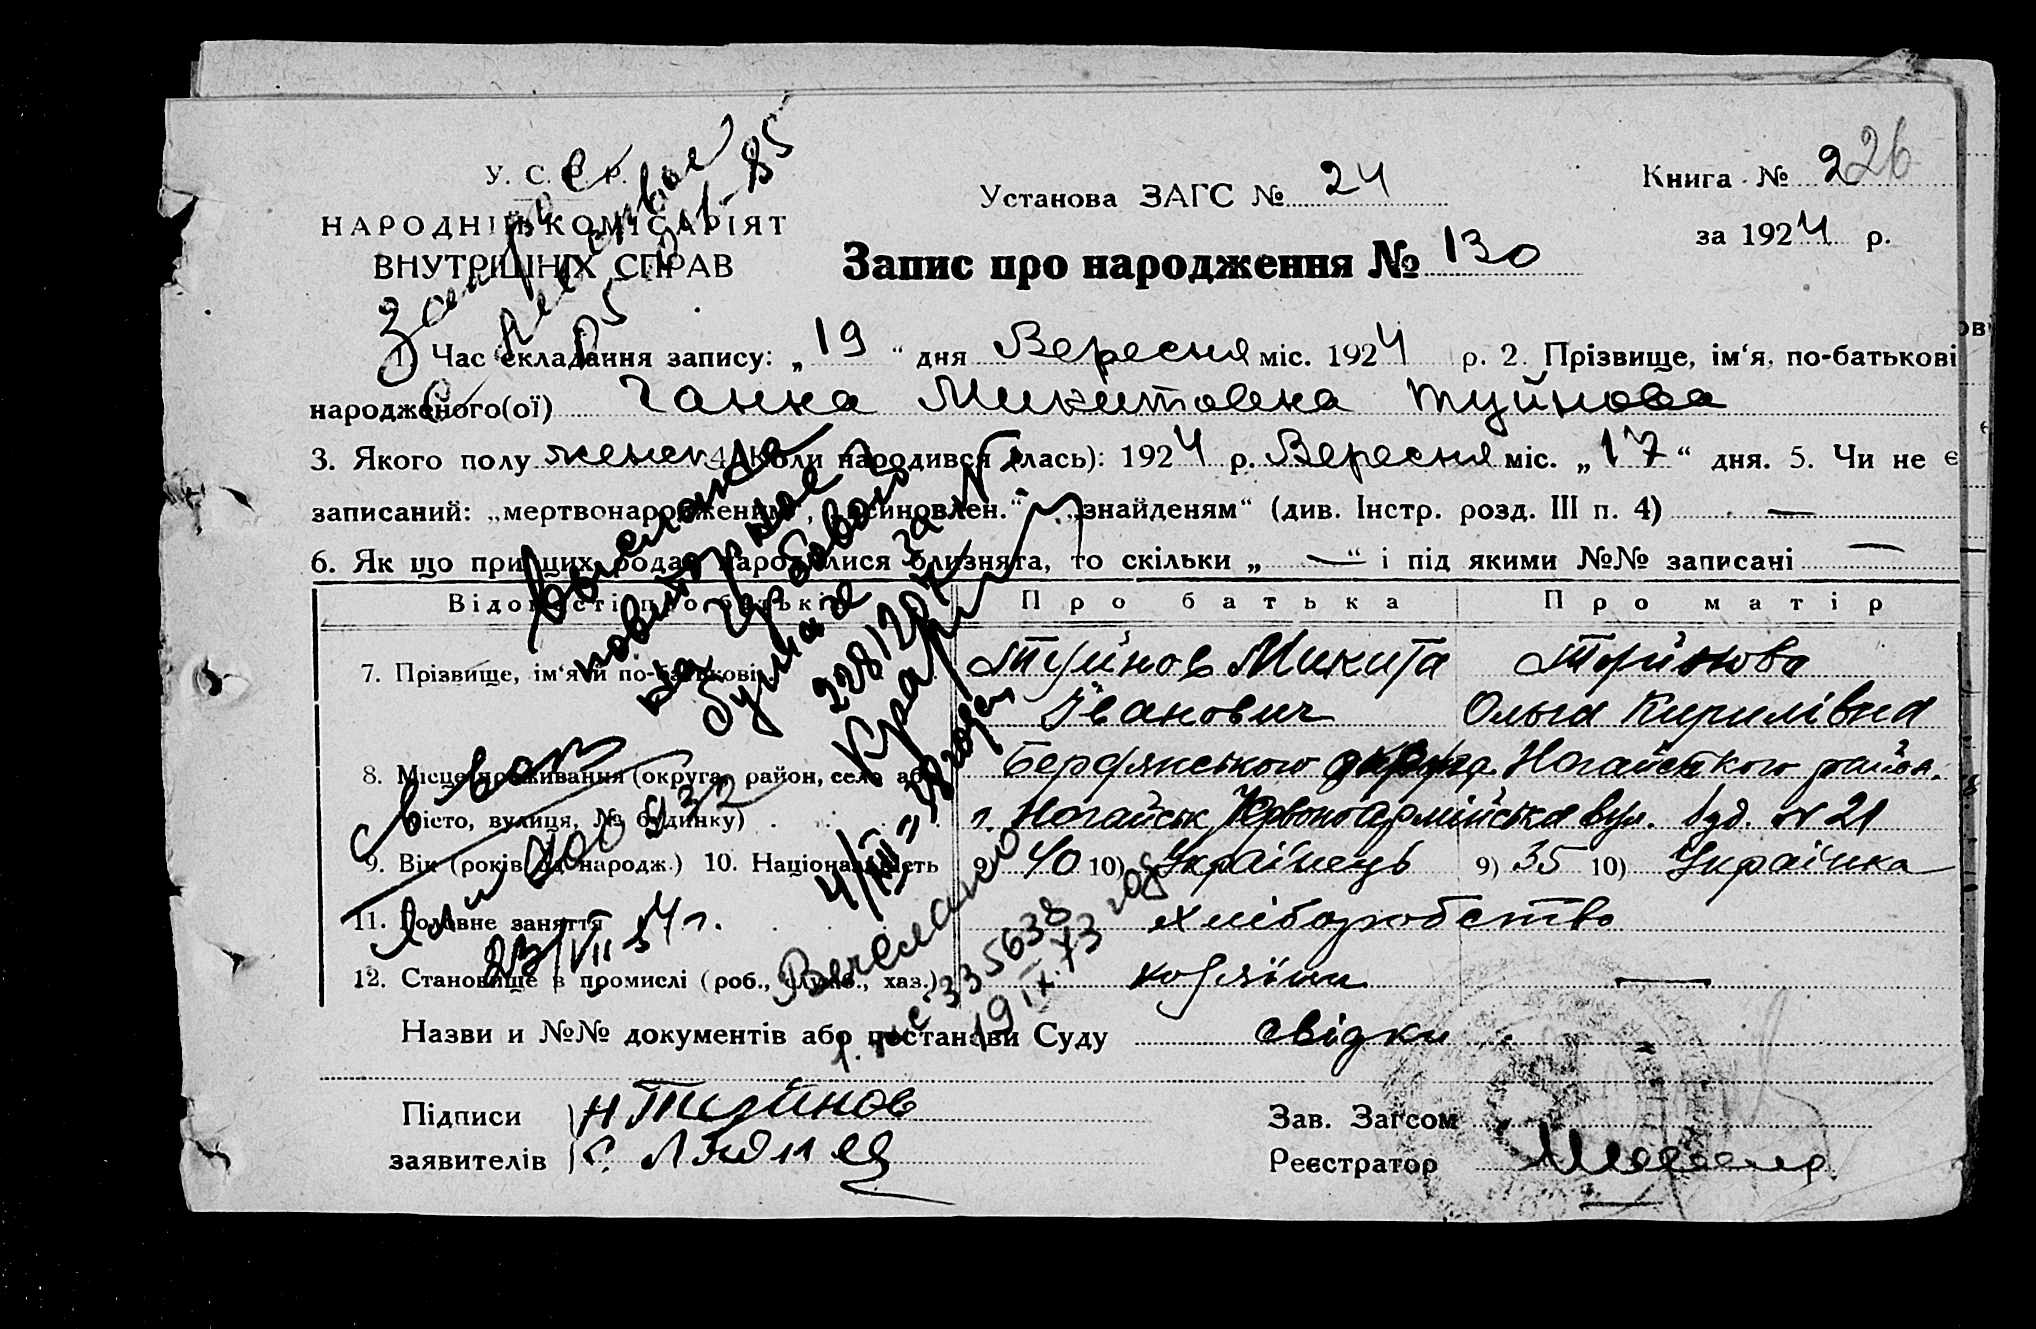 У. С. Р. Р.
НАРОДНІЙ КОМІСАРІЯТ
ВНУТРІШНІХ СПРАВ
Установа ЗАГС № 24
Книга № 226
за 1924 р.
Запис про народження № 130
1. Час складання запису: „19“ дня Вересня міс. 1924 р. 2. Прізвище, ім‘я, по-батькові
народженого(ої) Ганна Микитовна Туйнова
3. Якого полу женск 4. Коли народився (лась): 1924 р. Вересня міс. „17“ дня. 5. Чи не є
записаний: „мертвонародженим“, „усиновлен.“ „знайденям“ (див. Інстр. розд. III п. 4) —
6. Як що при цих родах народилися близнята, то скільки „—“ і під якими №№ записані —
Відомості про батьків
Про батька
Про матір
7. Прізвище, ім‘я и по-батькові
Туйнов Микита
Туйнова
Іванович
Ольга Кирилівна
8. Місце проживання (округа, район, село або
Бердянського округа. Ногайського район.
місто, вулиця, № будинку)
г. Ногайськ Червоноармійська вул. буд. № 21
9. Вік (років од народж.) 10. Національність
9) 40 10) Українець
9) 35 10) Українка
11. Головне заняття
хліборобство
12. Становище в промислі (роб., служб., хаз.)
хазяїни
—
Назви и №№ документів або постанови Суду свідки
Підписи Н Туйнов
заявителів
Зав. Загсом
Реєстратор
Выслано
повторное
на гербовой
бумаге за №
228/20
4/III-
23/VII 54 г.
Выслано
335638
19 IX.73